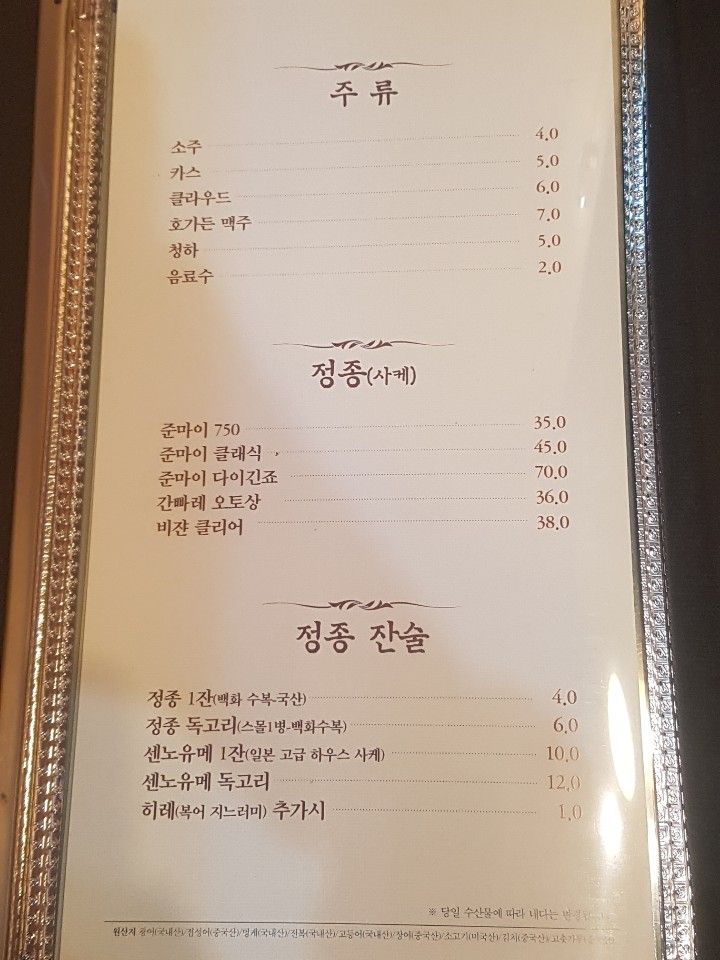 주 류
소주 4.0
카스 5.0
클라우드 6.0
호가든 맥주 7.0
청하 5.0
음료수 2.0
정종(사케)
준마이 750 35.0
준마이 클래식 45.0
준마이 다이긴죠 70.0
간빠레 오토상 36.0
비쟌 클리어 38.0
정종 잔술
정종 1잔(백화 수복-국산) 4.0
정종 독고리(스몰1병-백화수복) 6.0
센노유메 1잔(일본 고급 하우스 사케) 10.0
센노유메 독고리 12.0
히레(복어 지느러미) 추가시 1.0
※ 당일 수산물에 따라 네다는 변경
원산지 광어(국내산)/점성어(중국산)/멍게(국내산)/전복(국내산)/고등어(국내산)/장어(중국산)/소고기(미국산)/김치(중국산)/고춧가루